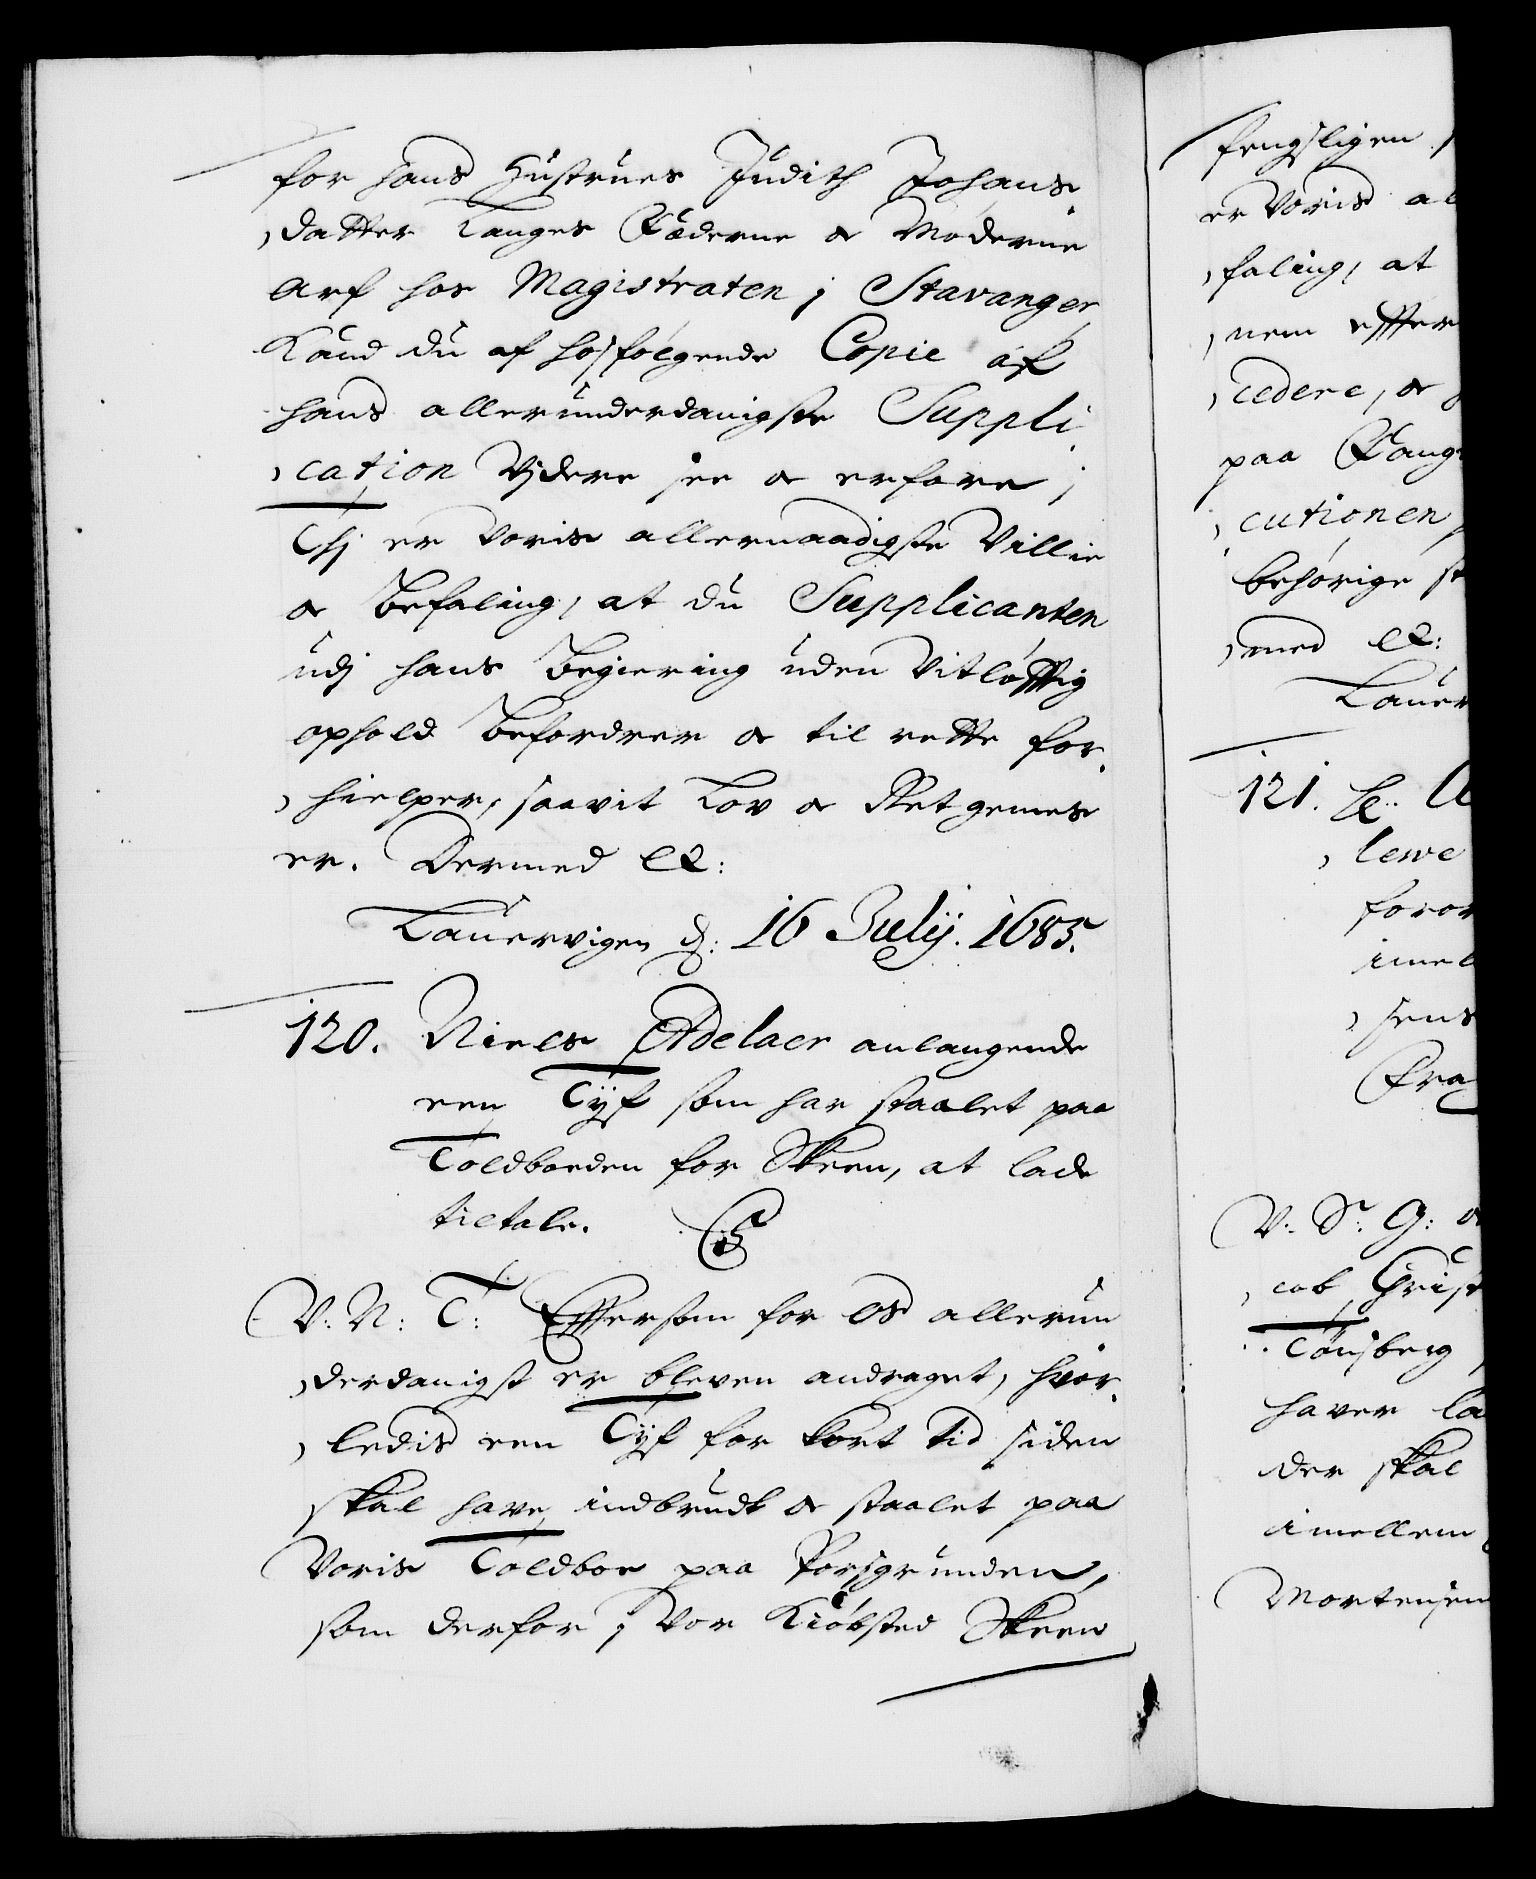 for hans Hustrues Judith Johans
datter Langes Fæderne oc Møderne
Arf hos Magistraten i Stavanger,
Kand du af hosfølgende Copie af
hans allerunderdanigste Suppli
cation Vjdere see oc erfare;
Thj er Voris allernaadigste Villie
oc Befaling, at du Supplicanten
udj hans Begiering uden Vitløfftig
ophold Befordrer oc til rette for
hielper, saavit Lov oc Ret gemes
er. Dermed etc:
Lauervigen d: 16 Julij. 1685.
120. Niels Adelaer anlangende
een Tÿf som har staalet paa
Toldboeden for Skeen, at lade
tiltale.
V: N: T: Effersom for Os allerun
derdanigst er bleven andraget, hvor
ledis een Tÿf for kort tid siden
skal have indbrudt oc staalet paa
Voris Toldboe paa Porsgrunden,
som derfor i Vor Kiøbsted Skeen
fengsligen
er Voris al
faling, at
nem effter
cedere, oc
paa Fang
cutionen
behørige st
med etc:
Lauer
121.
lewe
foror
imel
sens
Frag
V: Sr: G: o
cob Christ
Tønsberg
haver la
der skal
imellem
Mortensen